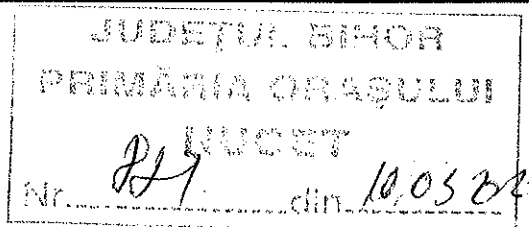 JUDEȚUL BIHOR
PRIMĂRIA ORAȘULUI
NUCET
Nr. din 10.03